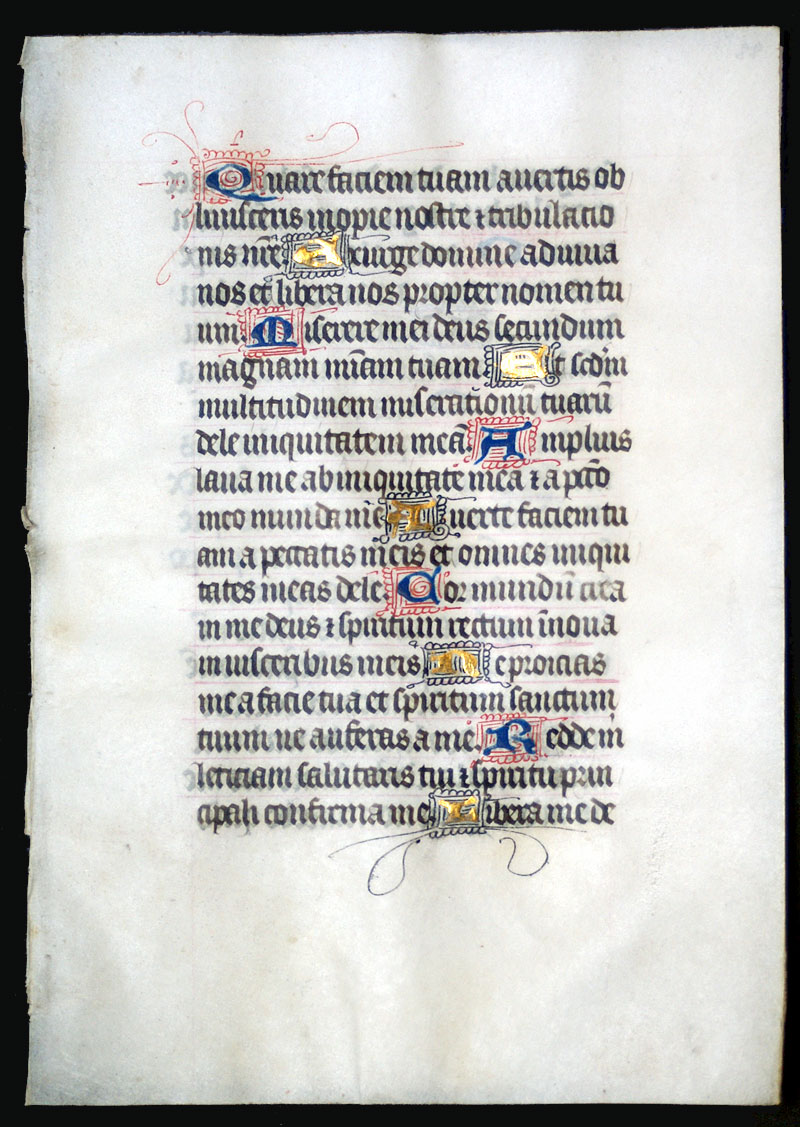 Quare faciem tuam auertis ob
liuisceris inopie nostre ⁊ tribulatio
nis nr̄e. Exurge domine adiuua
nos et libera nos propter nomen tu
um. Miserere mei deus secundum
magnam mīam tuam. Et scdm̄
multitudinem miserationū tuarū
dele iniquitatem meā. Amplius
laua me ab iniquitate mea ⁊ a pctō
meo munda me. Auerte faciem tu
am a peccatis meis et omnes iniqui
tates meas dele. Cor mundū crea
in me deus ⁊ spiritum rectum īnoua
in uisceribus meis. Ne proicias
me a facie tua et spiritum sanctum
tuum ne auferas a me. Redde m̄
leticiam salutaris tui ⁊ spiritu prin
cipali confirma me. Libera me de